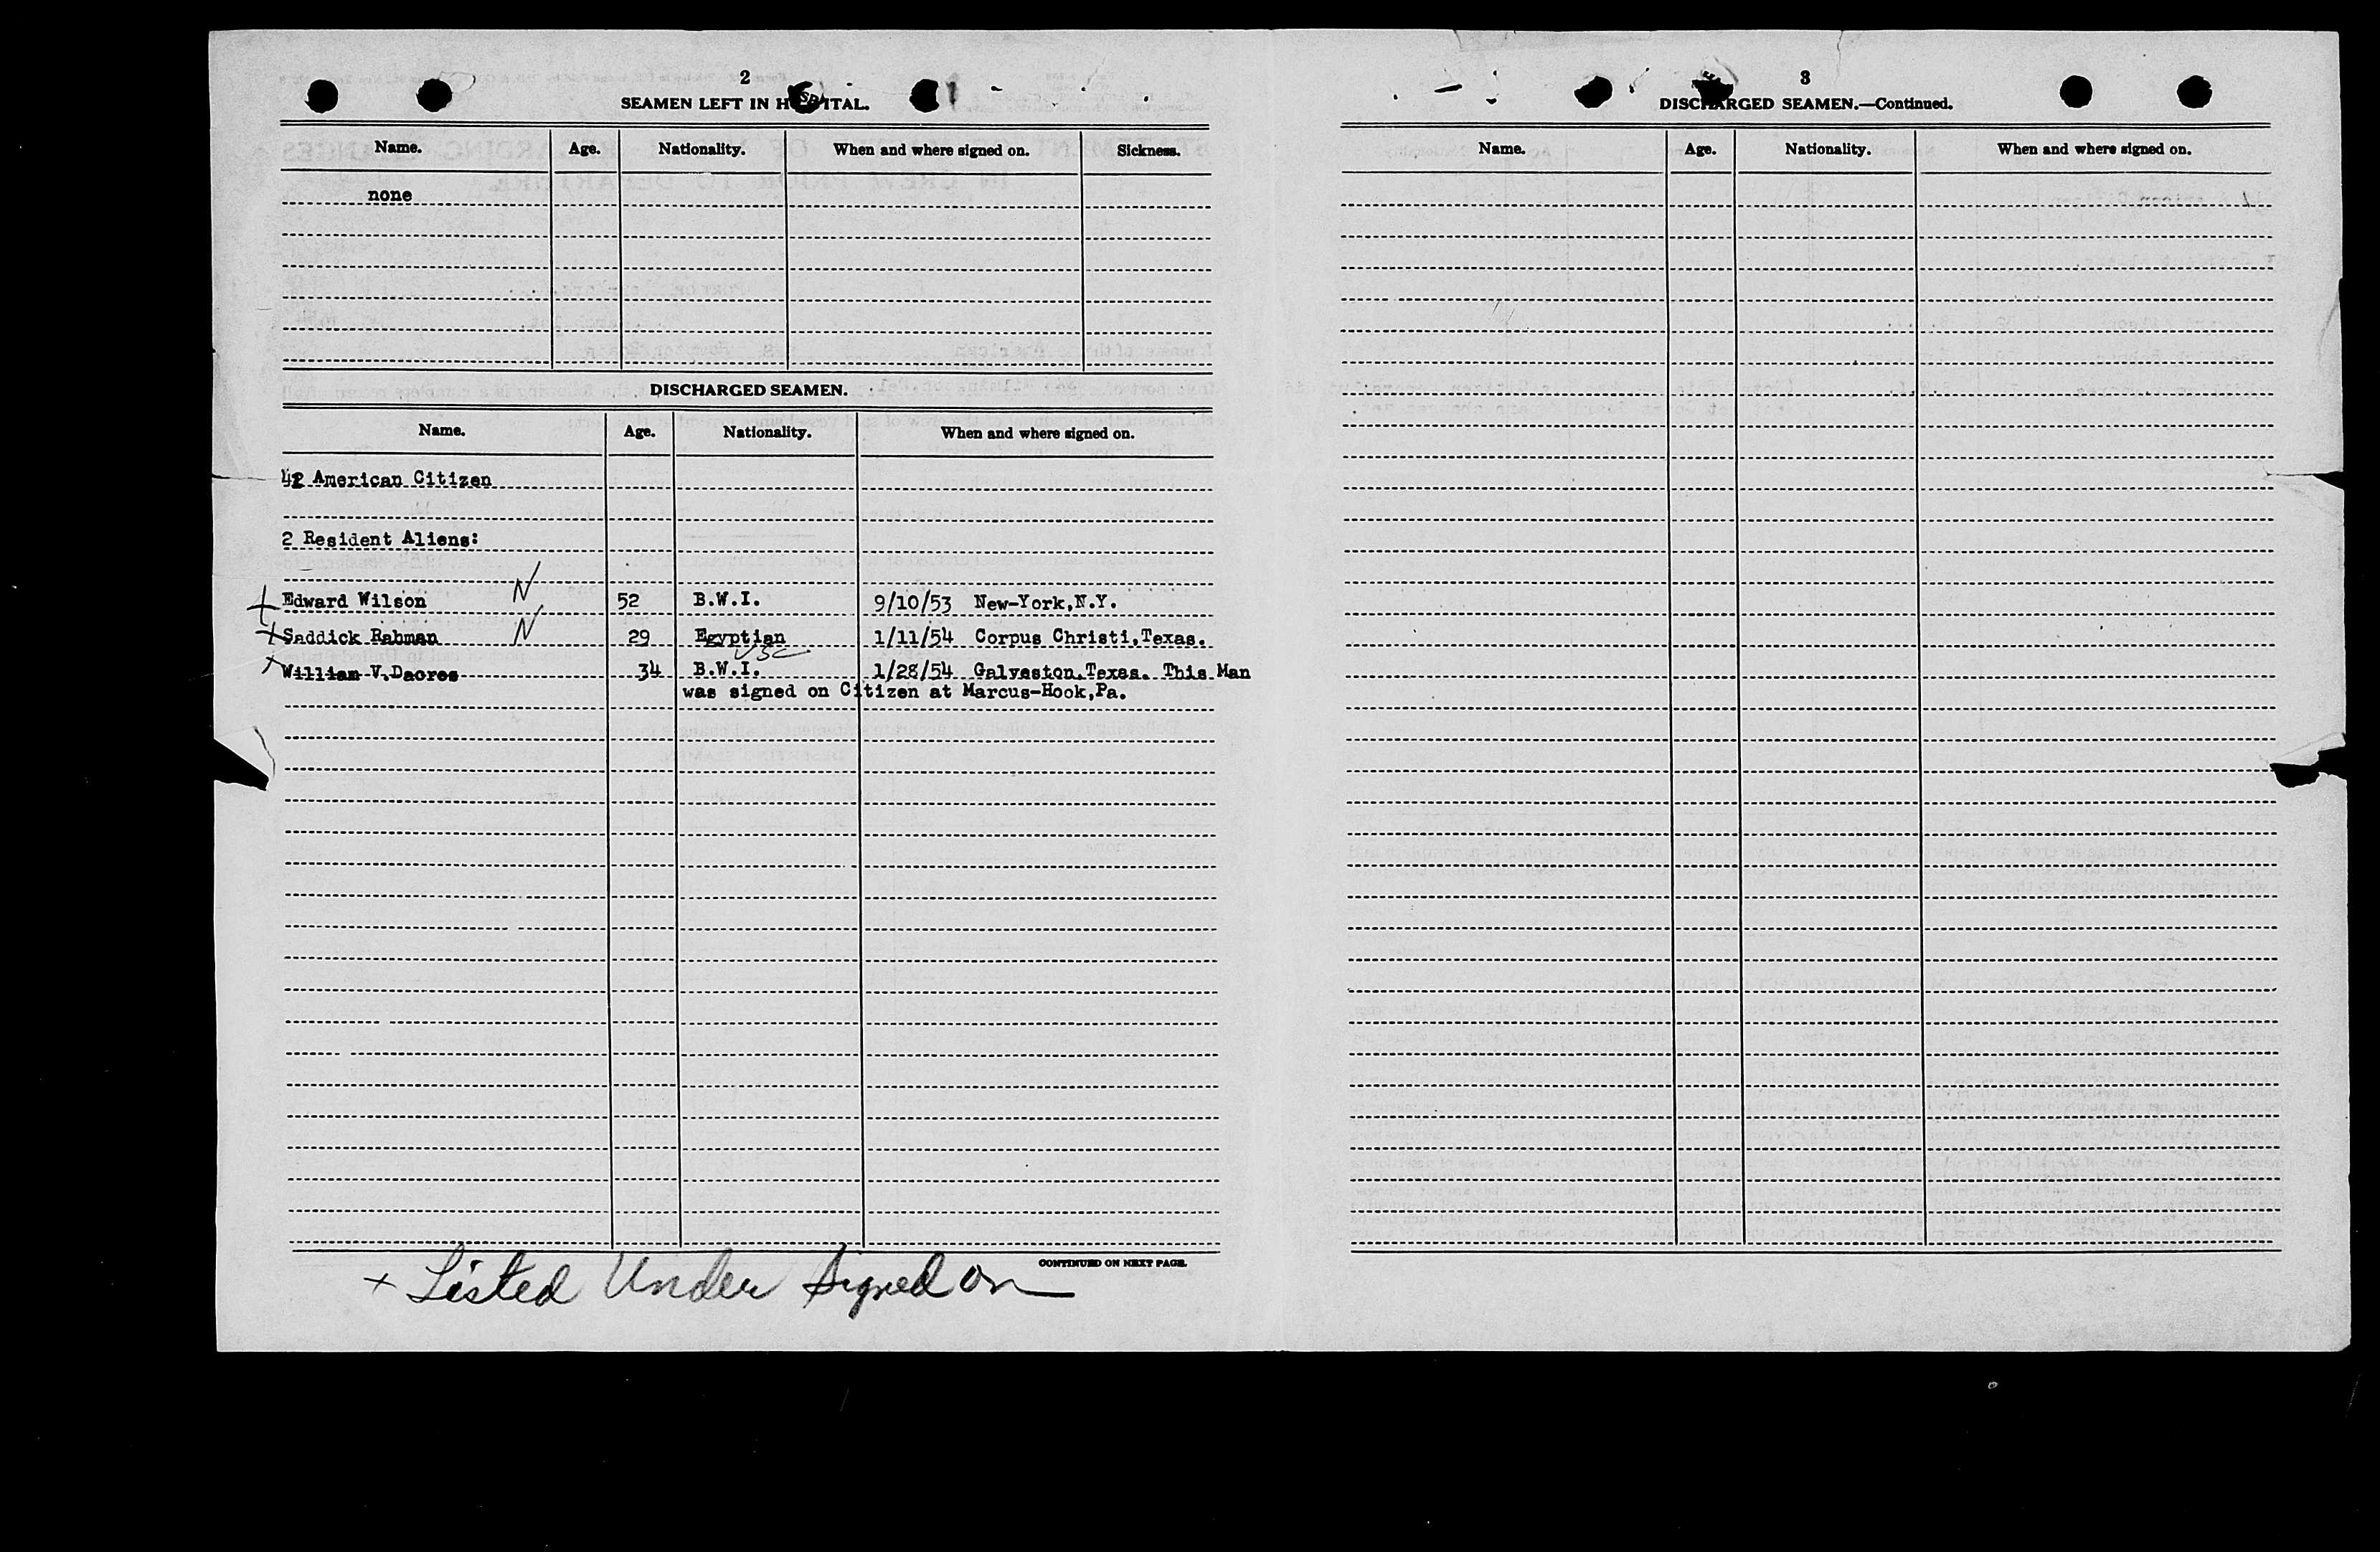 2
SEAMEN LEFT IN HOSPITAL.
Name. Age. Nationality. When and where signed on. Sickness.
none
DISCHARGED SEAMEN.
Name. Age. Nationality. When and where signed on.
42 American Citizen
2 Resident Aliens:
+ Edward Wilson N 52 B.W.I. 9/10/53 New-York,N.Y.
+ Saddick Rahman N 29 Egyptian 1/11/54 Corpus Christi,Texas.
USC
x William V.Dacres 34 B.W.I. 1/28/54 Galveston,Texas. This Man
was signed on Citizen at Marcus-Hook,Pa.
CONTINUED ON NEXT PAGE.
+ Listed Under Signed on
3
DISCHARGED SEAMEN.—Continued.
Name. Age. Nationality. When and where signed on.